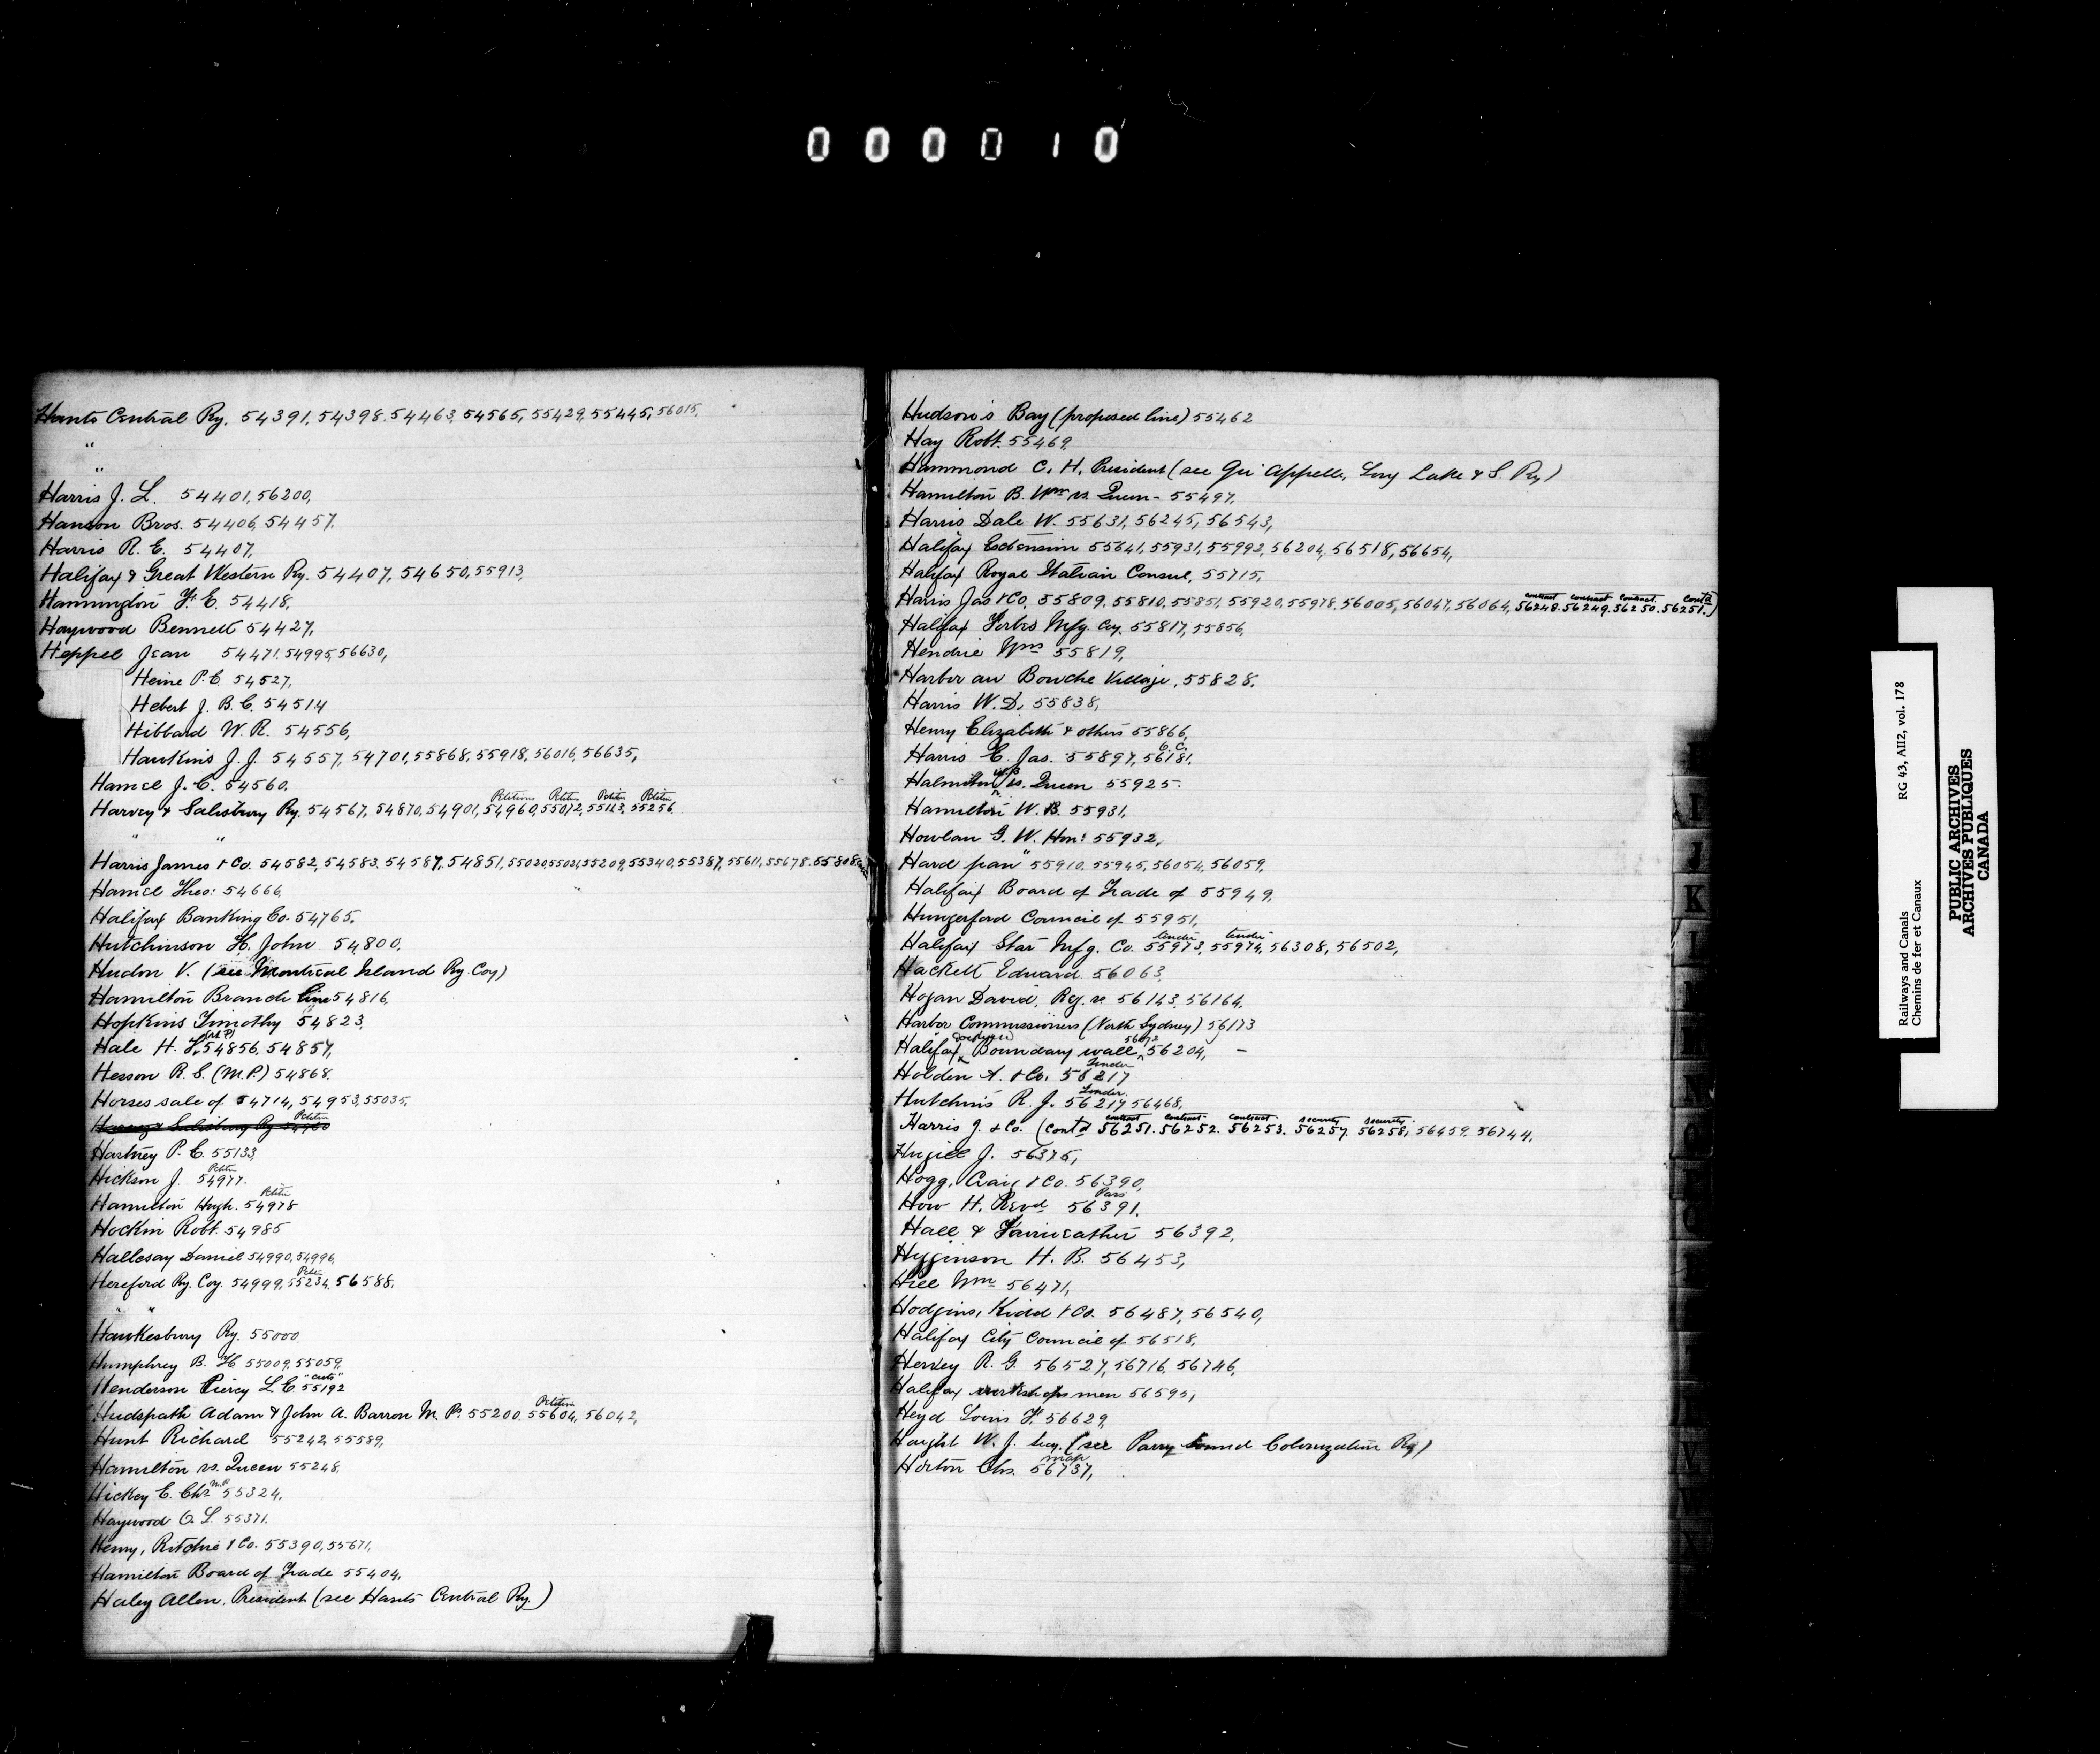 000010
Hants Central Ry. 54391, 54398. 54463, 54565, 55429, 55445, 56015,
"
"
Harris J. L. 54401, 56200,
Hanson Bros. 54406, 54457.
Harris R. E. 54407,
Halifax & Great Western Ry. 54407, 54650, 55913,
Hannington F. E. 54418,
Haywood Bennett 54427,
Heppel Jean 54471, 54995, 56630,
Heine P. E. 54527,
Hebert J. B. C. 54514
Hibbard W. R. 54556,
Hawkins J. J. 54557, 54701, 55868, 55918, 56016, 56635,
Hamel J. C. 54560,
Petitions Petition Petition Petition
Harvey & Salisbury Ry. 54567, 54870, 54901, 54960, 55072, 55113, 55256
" "
Harris James & Co. 54582, 54583. 54587, 54851, 55020, 55021, 55209, 55340, 55387, 55611, 55678. 55808
Hamel Theo: 54666,
Halifax Banking Co. 54765.
Hutchinson H. John 54800,
Hudon V. (see Montreal Island Ry. Coy)
Hamilton Branch Line 54816,
Hopkins Timothy 54823,
(M.P.)
Hale H. F. 54856, 54857,
Hesson R. S. (M.P.) 54868.
Horses sale of 54714, 54953, 55035,
Petition
Harvey & Salisbury Ry 54960
Hartney P. E. 55133,
Petition
Hickson J. 54977.
Petition
Hamilton Hugh. 54978
Hockin Robt. 54985
Hallesay Daniel 54990, 54996,
Petition
Hereford Ry. Coy. 54999, 55234, 56588,
" "
Hawkesbury Ry. 55000,
Humphrey B. H 55009, 55059,
Henderson Piercy L. E. 55192
Petition
Hudspath Adam & John A. Barron M. P. 55200, 55604, 56042,
Hunt Richard 55242, 55589,
Hamilton vs. Queen 55248,
Hickey C. Chs M.P. 55324,
Haywood O. L. 55371.
Henry, Ritchie & Co. 55390, 55671,
Hamilton Board of Trade 55404,
Haley Allen, President (see Hants Central Ry.)
Hudson's Bay (proposed line) 55462
Hay Robt. 55469,
Hammond C. H. President (see Qu' Appelle, Long Lake & S. Ry)
Hamilton B. Wm vs. Queen - 55497,
Harris Dale W. 55631, 56245, 56543,
Halifax Extension 55641, 55931, 55992, 56204, 56518, 56654,
Halifax Royal Italian Consul, 55715,
contract contract contract. Contd
Harris Jas & Co. 55809, 55810, 55851, 55920, 55978, 56005, 56047, 56064, 56248. 56249. 56250. 56251.)
Halifax Forbes Mfg. Coy. 55817, 55856,
Hendrie Wm 55819,
Harbor au Bouche Village, 55828.
Harris W. D. 55838,
Henry Elizabeth & others 55866,
O. C.
Harris E. Jas. 55897, 56181,
Hamilton vs. Queen 55925.
Hamilton W. B. 55931,
Howlan G. W. Hon: 55932,
Hard pan" 55910, 55945, 56054, 56059,
Halifax Board of Trade of 55949,
Hungerford Council of 55951,
tender tender
Halifax Star Mfg. Co. 55973, 55974, 56308, 56502,
Hackett Edward 56063,
Hogan David, Ry. vs 56143, 56164,
Harbor Commissioners (North Sydney) 56173
Dockyard 56072
Halifax Boundary wall, 56204, -
Tender
Holden A. & Co. 56217
Tender.
Hutchins R. J. 56217 56468,
contract contract. contract. security security.
Harris J. & Co. (Contd 56251. 56252. 56253. 56257. 56258, 56459, 56744,
Hugill J. 56375,
Hogg, Craig & Co. 56390,
Pass
How H. Revd 56391.
Hall & Fairweather 56392,
Higginson H. B. 56453,
Hill Wm 56471,
Hodgins, Kidd & Co. 56487, 56540,
Halifax City Council of 56518,
Hervey R. G. 56527, 56716, 56746,
Halifax workshops men 56595,
Heyd Louis F. 56629,
Haight W. J. Secy. (see Parry Sound Colonization Ry)
map
Horton Chs. 56737,
I
J
K
L
N
V
X
Railways and Canals RG 43, AII2, vol. 178
Chemins de fer et Canaux
PUBLIC ARCHIVES
ARCHIVES PUBLIQUES
CANADA